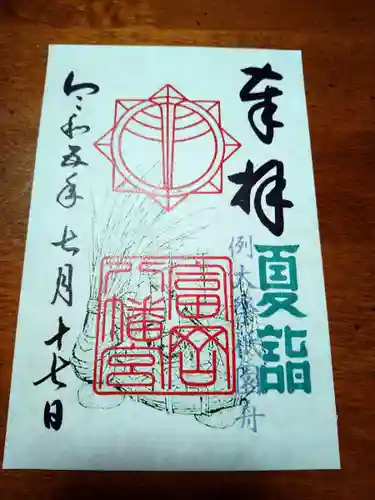 奉拝
夏詣
富岡
八幡宮
令和五年七月十七日